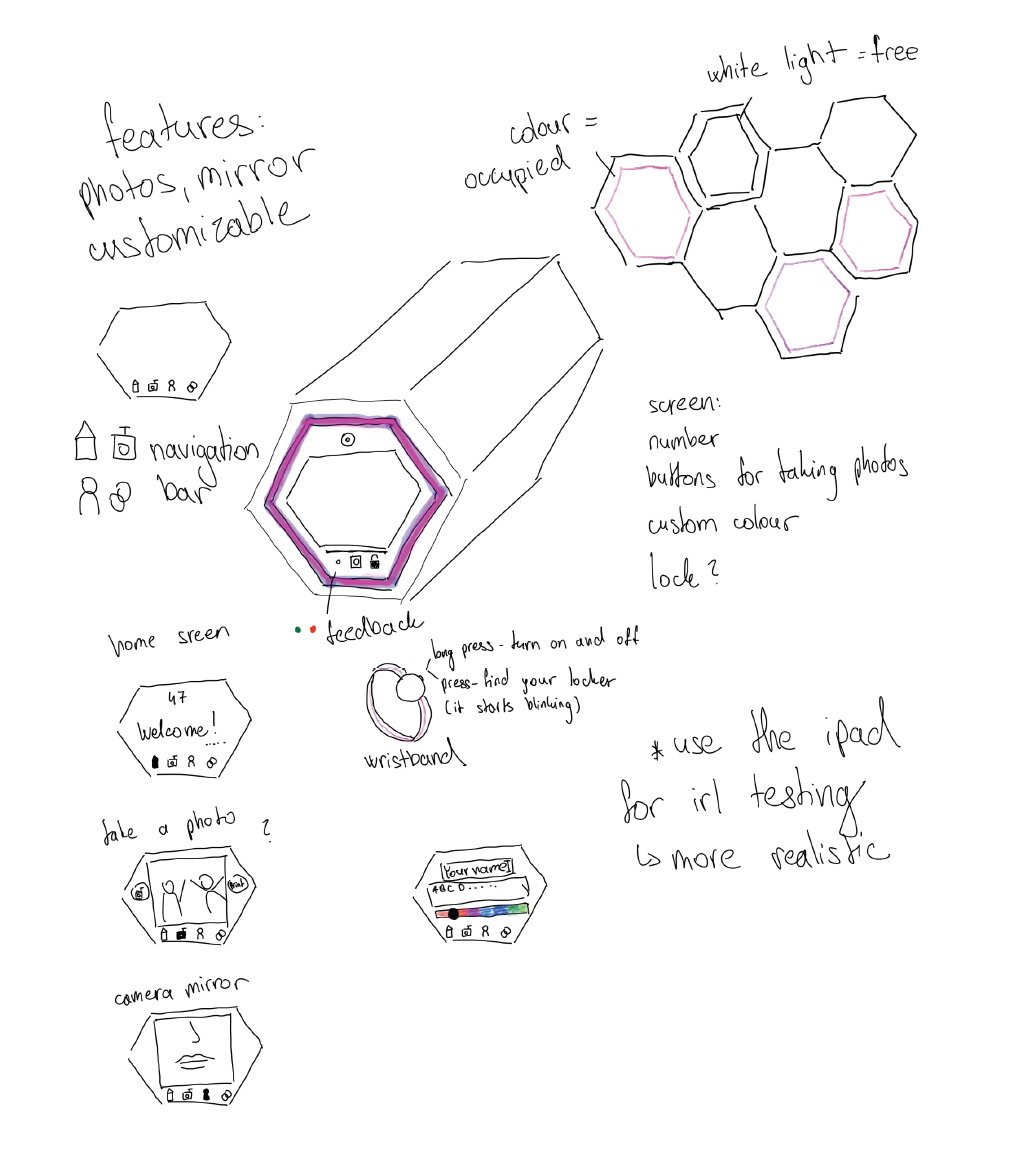 white light = free
features:
photos, mirror
customizable
colour =
occupied
navigation
bar
screen:
number
buttons for taking photos
custom colour
lock?
feedback
home sreen
47
Welcome!
long press - turn on and off
press - find your locker
(it starts blinking)
wristband
* use the ipad
for irl testing
↳ more realistic
take a photo ?
[Your name]
ABCD.....
camera mirror